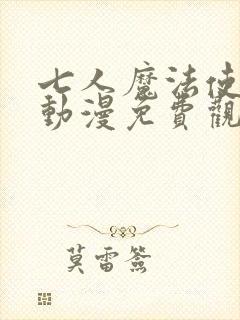 七人魔法使
動漫免費觀
莫雷簽